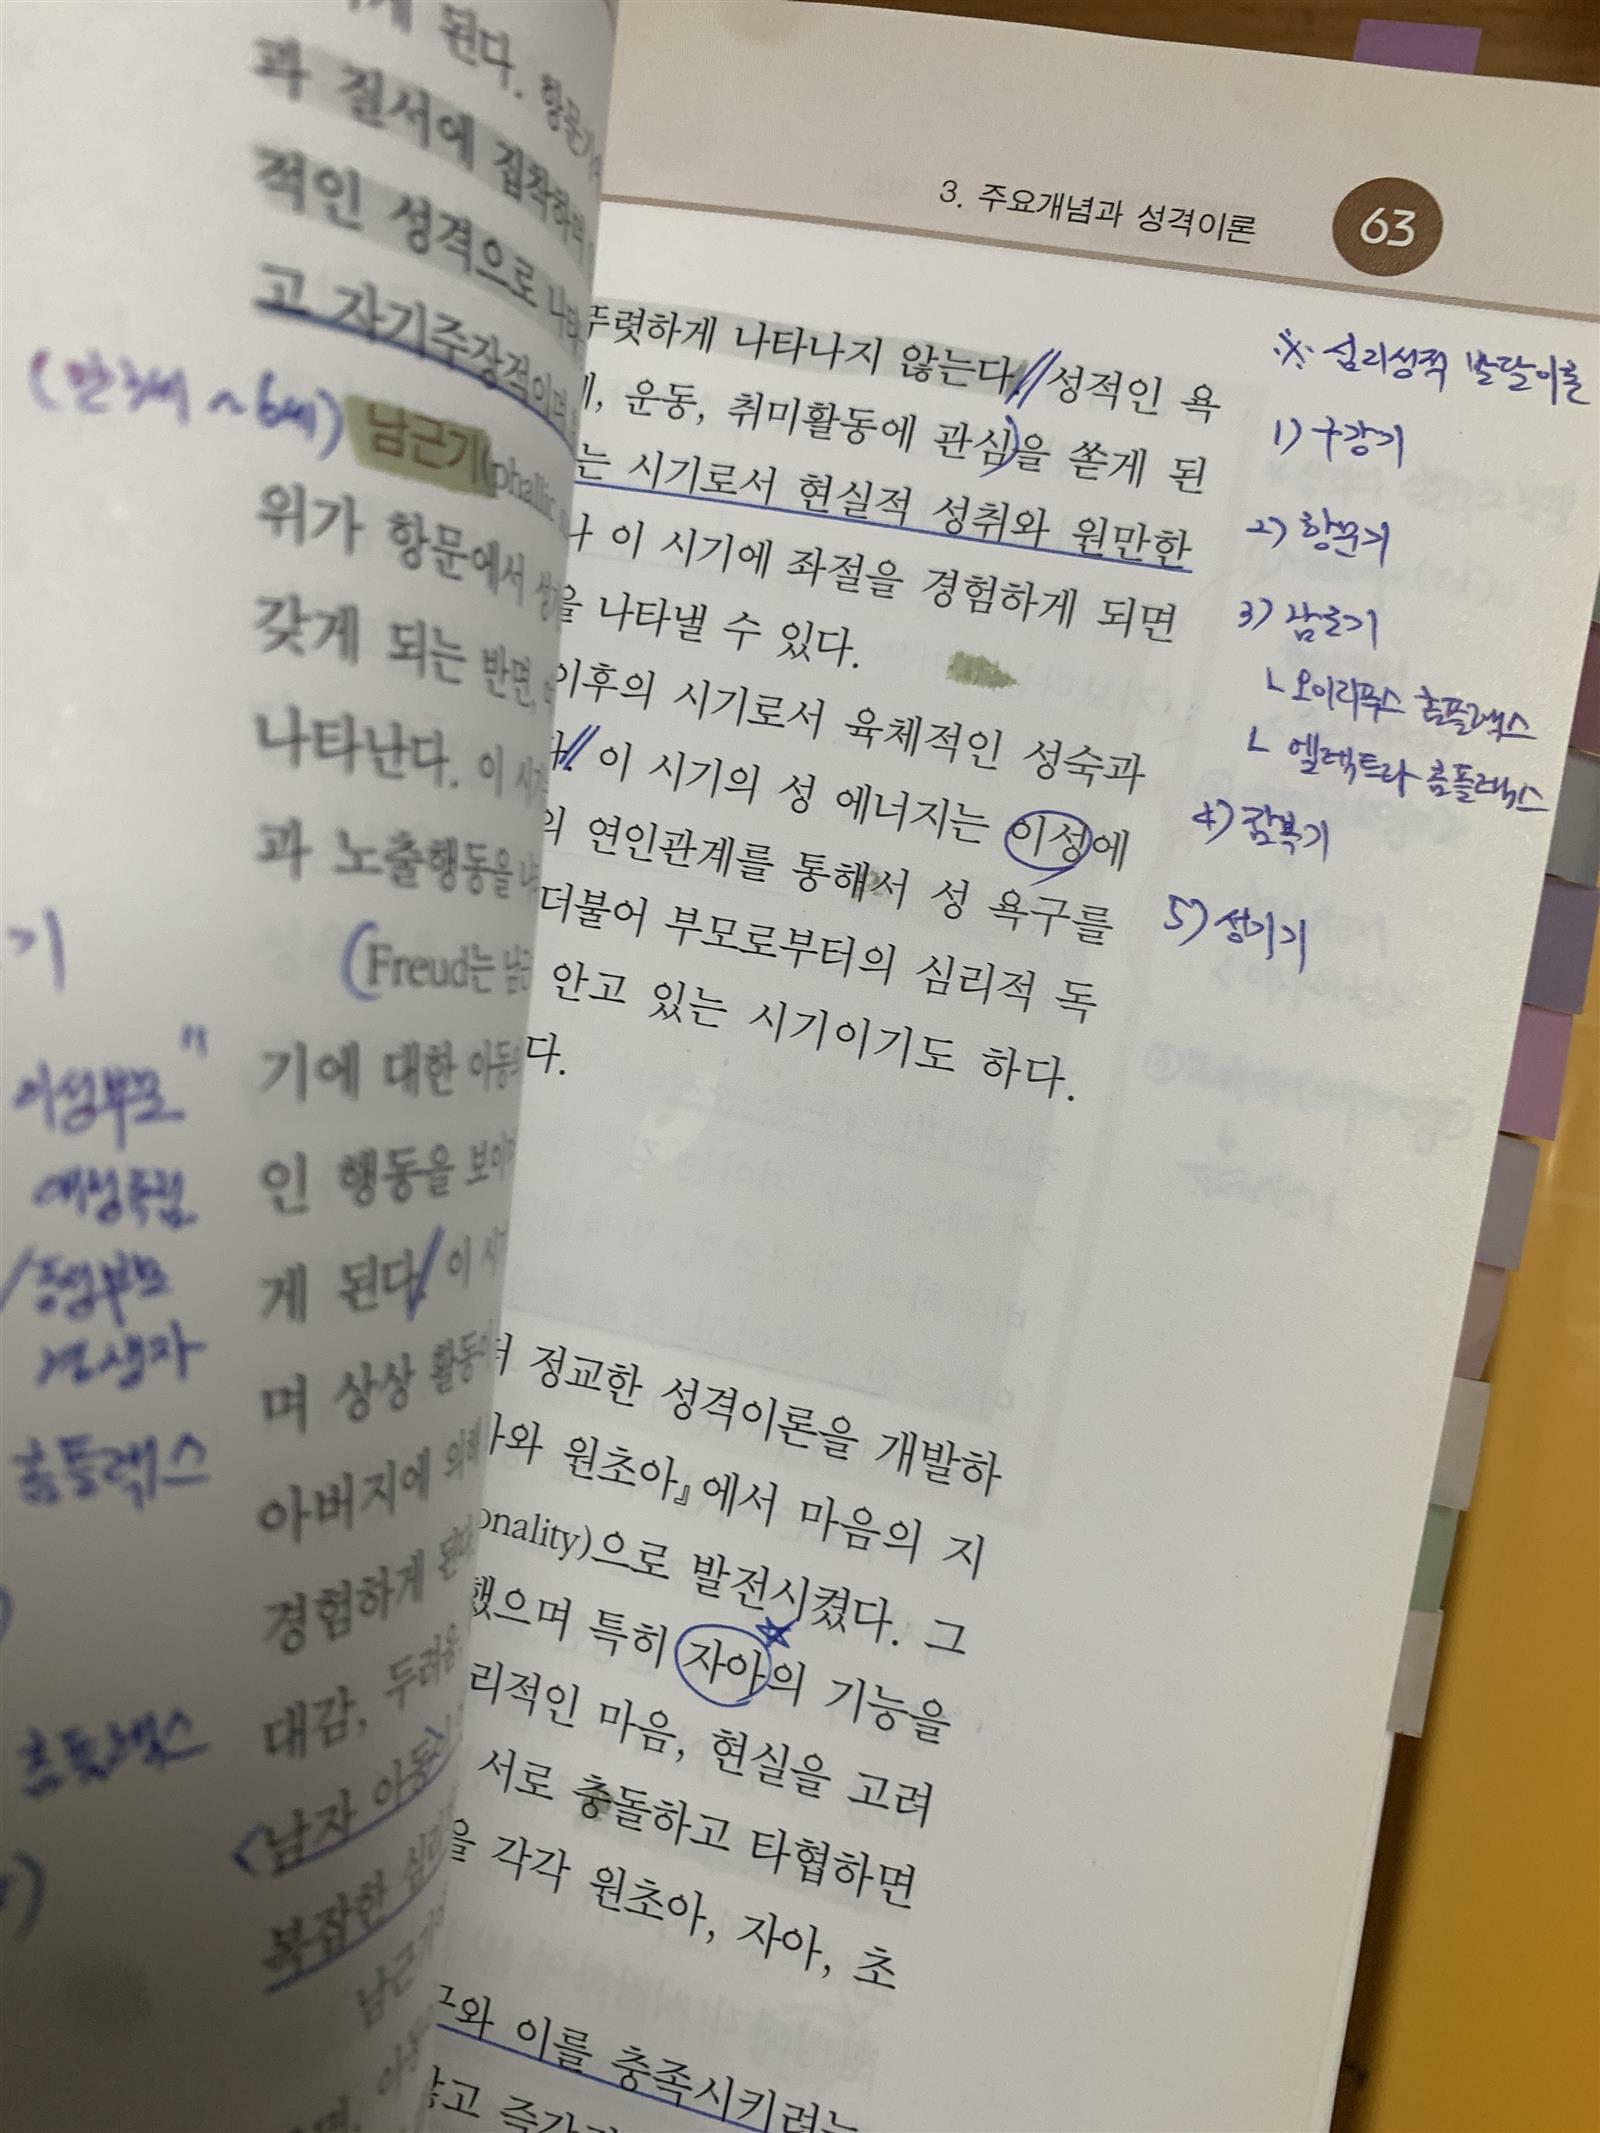 게 된다. 항문기
과 질서에 집착하며
적인 성격으로 나타
고 자기주장적이며
(만 3세 ~ 6세) 남근기(phallic
위가 항문에서 성
갖게 되는 반면,
나타난다. 이 시
과 노출행동을 나
(Freud는 남근
기에 대한 아동의
인 행동을 보이
게 된다. 이 시
며 상상 활동이
아버지에 의해
경험하게 된다
대감, 두려움,
<남자 아동
복잡한 심리
남근기
기
이성부모
애정독점
동성부모
경쟁자
콤플렉스
콤플렉스
3. 주요개념과 성격이론 63
뚜렷하게 나타나지 않는다. 성적인 욕
운동, 취미활동에 관심을 쏟게 된
는 시기로서 현실적 성취와 원만한
나 이 시기에 좌절을 경험하게 되면
을 나타낼 수 있다.
이후의 시기로서 육체적인 성숙과
다. 이 시기의 성 에너지는 이성에
의 연인관계를 통해서 성 욕구를
더불어 부모로부터의 심리적 독
안고 있는 시기이기도 하다.
다.
정교한 성격이론을 개발하
아와 원초아』에서 마음의 지
onality)으로 발전시켰다. 그
했으며 특히 자아의 기능을
리적인 마음, 현실을 고려
서로 충돌하고 타협하면
을 각각 원초아, 자아, 초
구와 이를 충족시키려는
않고 즉각
※ 심리성적 발달이론
1) 구강기
2) 항문기
3) 남근기
ㄴ 오이디푸스 콤플렉스
ㄴ 엘렉트라 콤플렉스
4) 잠복기
5) 성기기